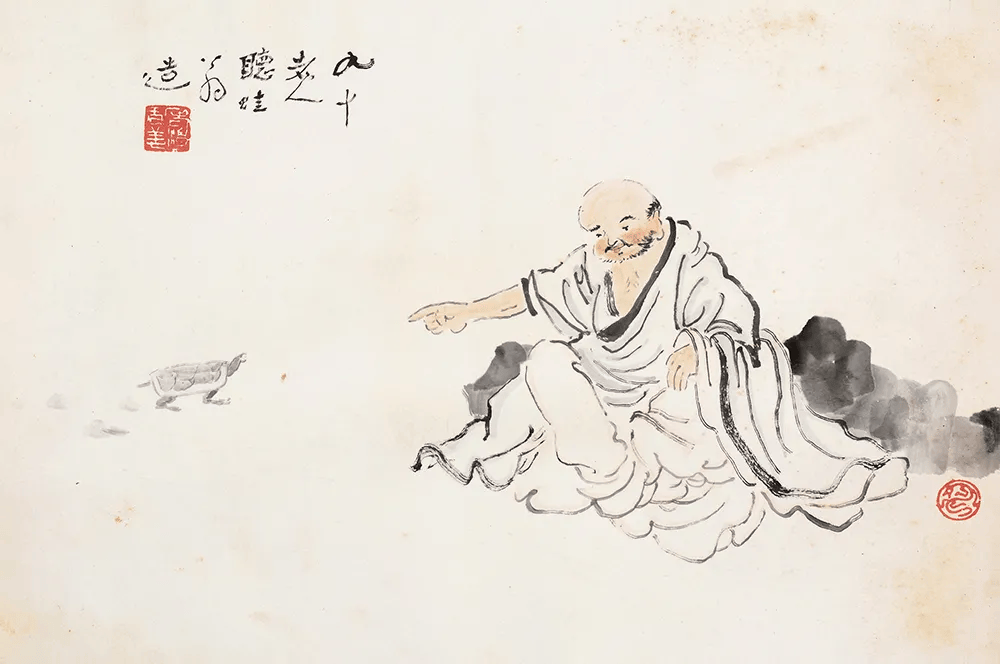 九十
老人
聽蛙
翁
造